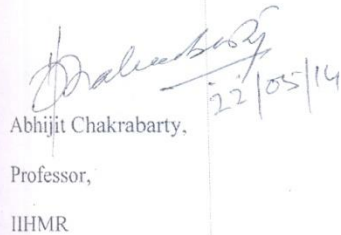 22/05/14
Abhijit Chakrabarty,
Professor,
IIHMR